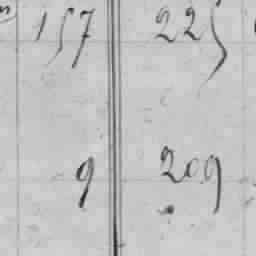 157 225
9 209